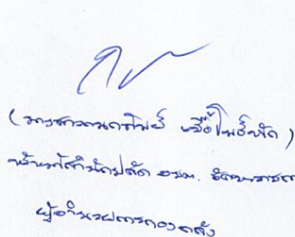 (นางสาวกนกทิพย์ เชื้อโพธิ์หัก)
หัวหน้าสำนักปลัด อบต. รักษาราชการ
ผู้อำนวยการกองคลัง